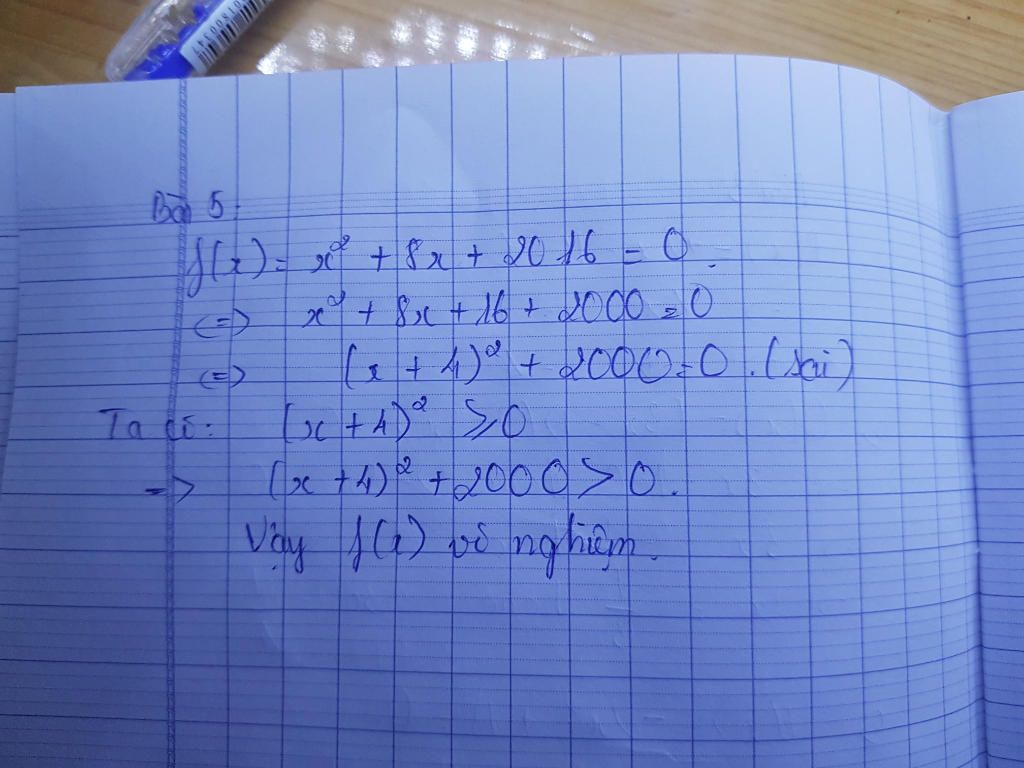 Bài 5:
f(x) = x² + 8x + 2016 = 0.
<=> x² + 8x + 16 + 2000 = 0
<=> (x + 4)² + 2000 = 0. (sai)
Ta có: (x + 4)² ≥ 0
=> (x + 4)² + 2000 > 0.
Vậy f(x) vô nghiệm.